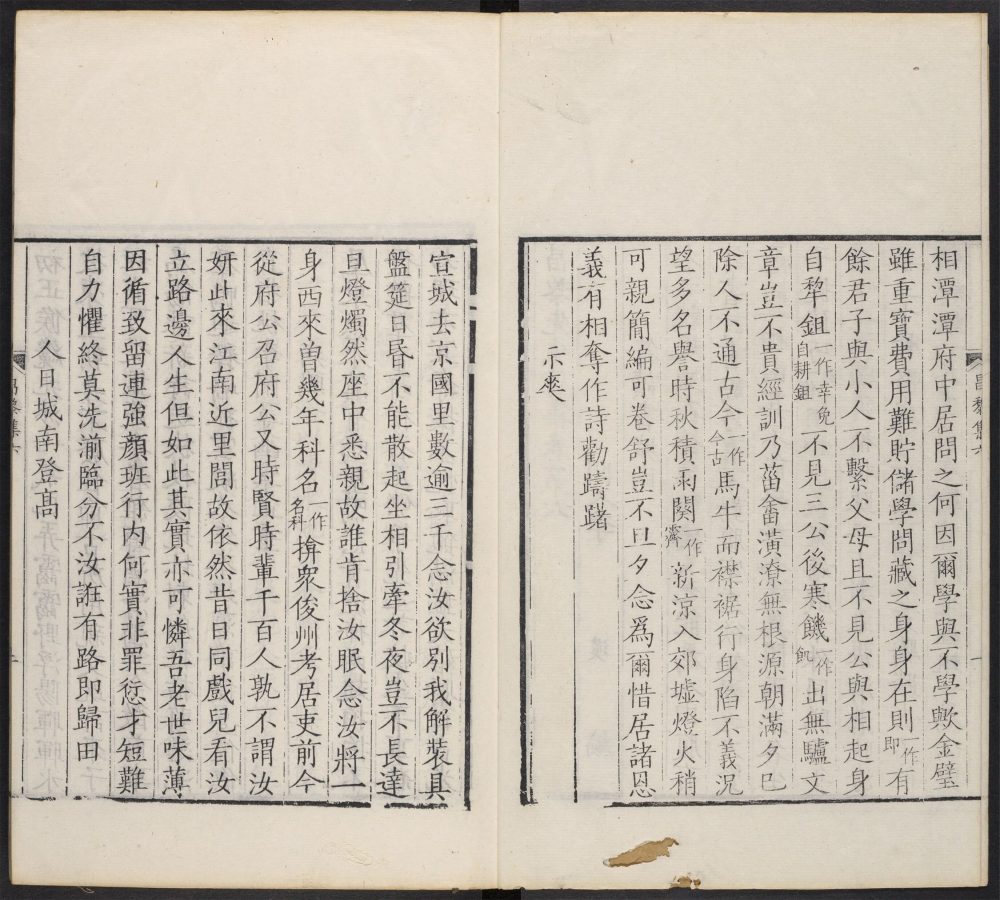 相潭潭府中居問之何因爾學與不學歟金璧
雖重寶費用難貯儲學問藏之身身在則一作即有
餘君子與小人不繫父母且不見公與相起身
自犂鉏一作幸免自耕鉏不見三公後寒饑一作飢出無驢文
章豈不貴經訓乃菑畬潢潦無根源朝滿夕已
除人不通古今一作今古馬牛而襟裾行身陷不義況
望多名譽時秋積雨闋一作霽新涼入郊墟燈火稍
可親簡編可卷舒豈不旦夕念爲爾惜居諸恩
義有相奪作詩勸躊躇
示爽
宣城去京國里數逾三千念汝欲別我解裝具
盤筵日昬不能散起坐相引牽冬夜豈不長達
旦燈燭然座中悉親故誰肯捨汝眠念汝將一
身西來曾幾年科名一作名科揜衆俊州考居吏前今
從府公召府公又時賢時輩千百人孰不謂汝
妍此來江南近里閭故依然昔日同戲兒看汝
立路邊人生但如此其實亦可憐吾老世味薄
因循致留連強顏班行内何實非罪愆才短難
自力懼終莫洗湔臨分不汝誑有路即歸田
人日城南登髙